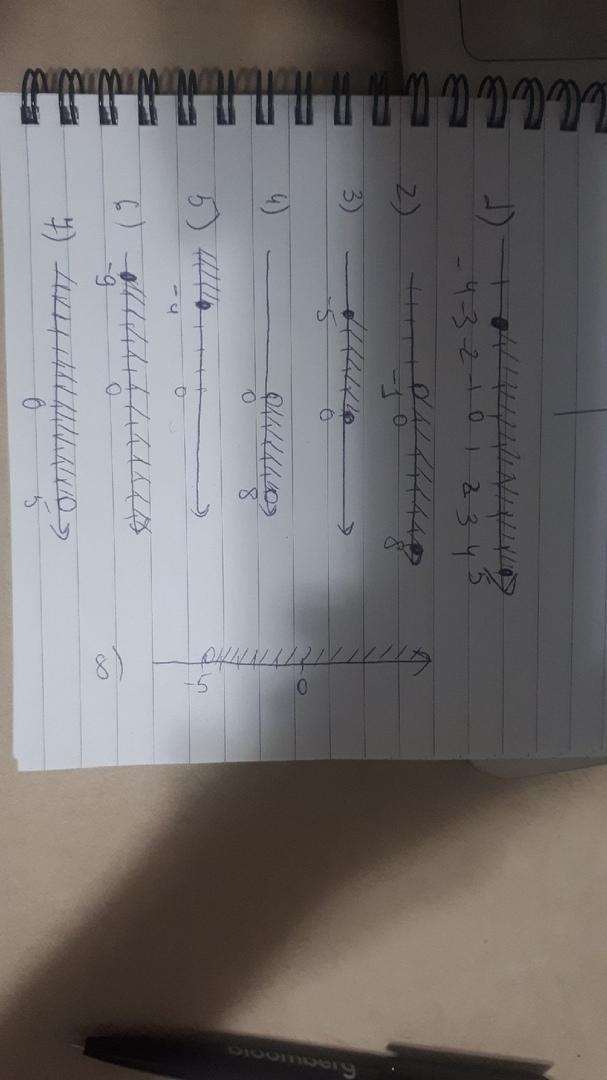 1)
-4 -3 -2 -1 0 1 2 3 4 5
2)
-1 0 8
3)
-5 0
4)
0 8
5)
-4 0
6)
-9 0
7)
0 5
8)
-5 0
bloomberg